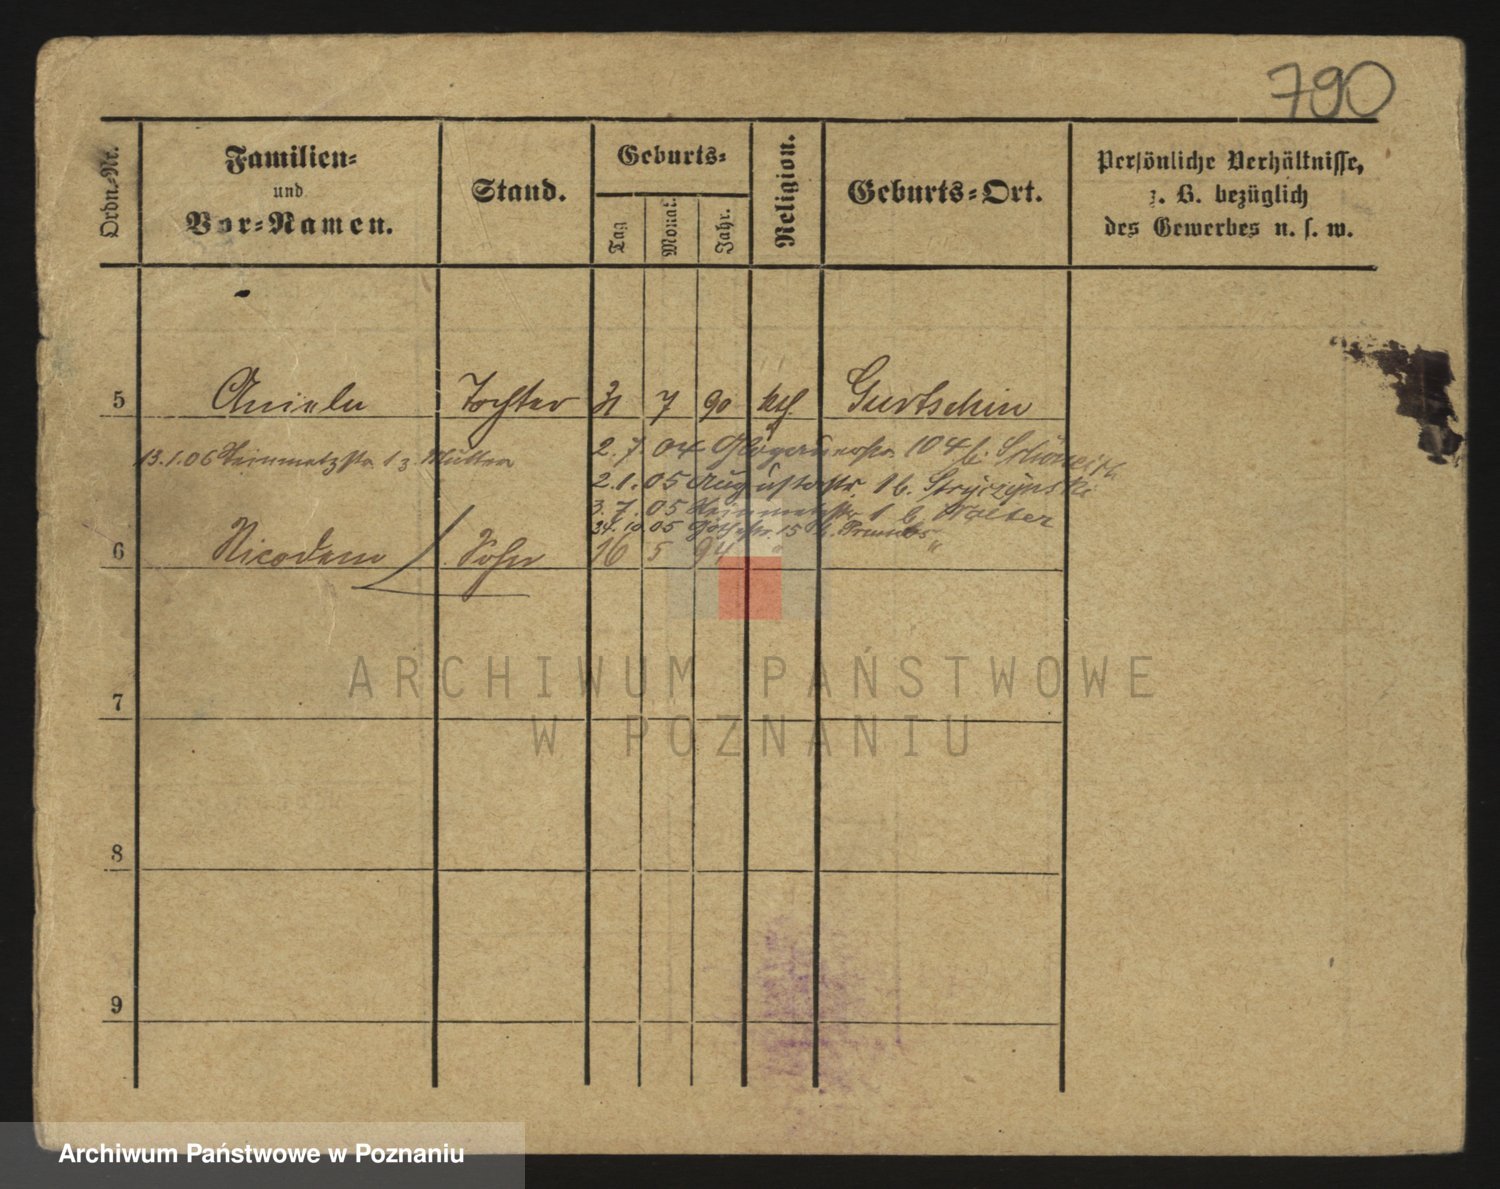 790
Ordn.-Nr.
Familien-
und
Vor-Namen.
Stand.
Geburts-
Tag
Monat.
Jahr.
Religion.
Geburts-Ort.
Persönliche Verhältnisse,
z. B. bezüglich
des Gewerbes u. s. w.
5 Aniela Tochter 31 7 90 kth Gurtschin
2.7.04 Glogauerstr. 104 b.
13.1.06 Steinmetzstr. 1 z. Mutter
2.1.05 Augustastr. 1 b. Stryczynski
3.7.05 Steinmetzstr. 1 b. Walter
31.10.05 15 b.
6 Nicodem Sohn 16 5 94 " "
7
8
9
ARCHIWUM PAŃSTWOWE
W POZNANIU
Archiwum Państwowe w Poznaniu